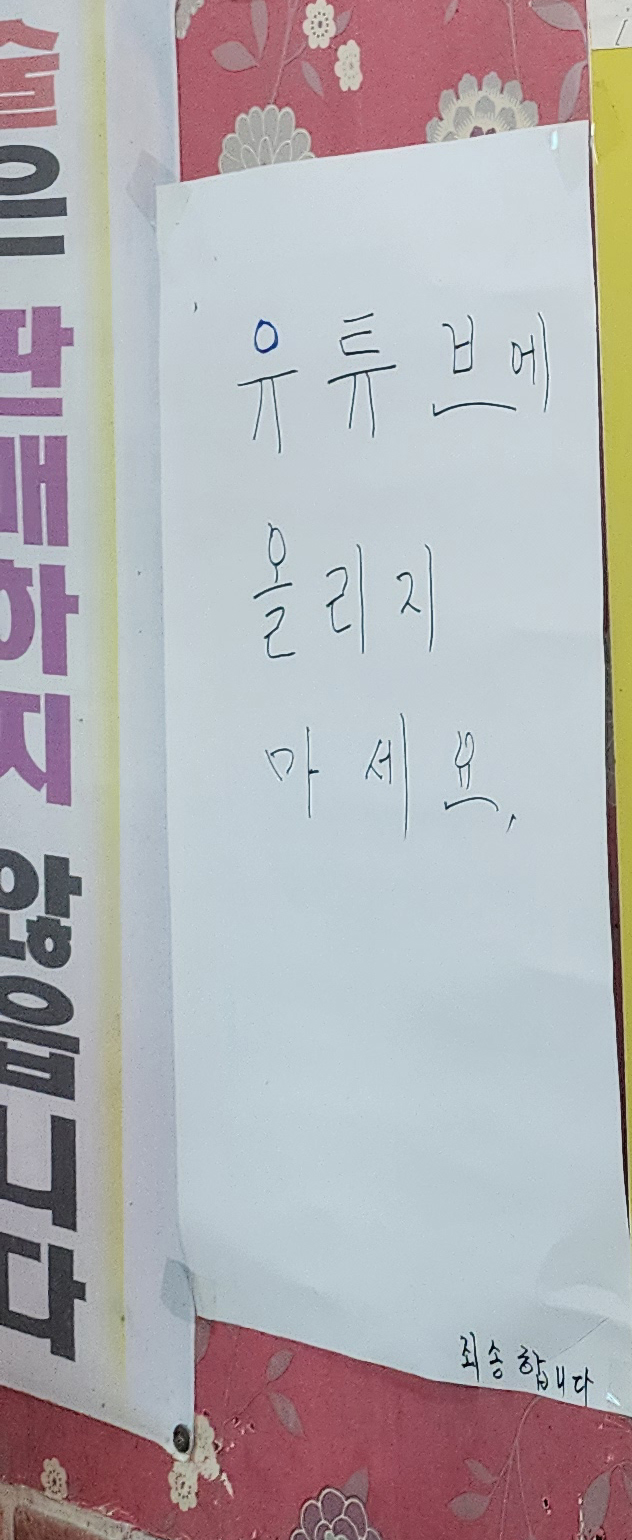 술은 판매하지 않습니다
유튜브에
올리지
마세요.
죄송합니다